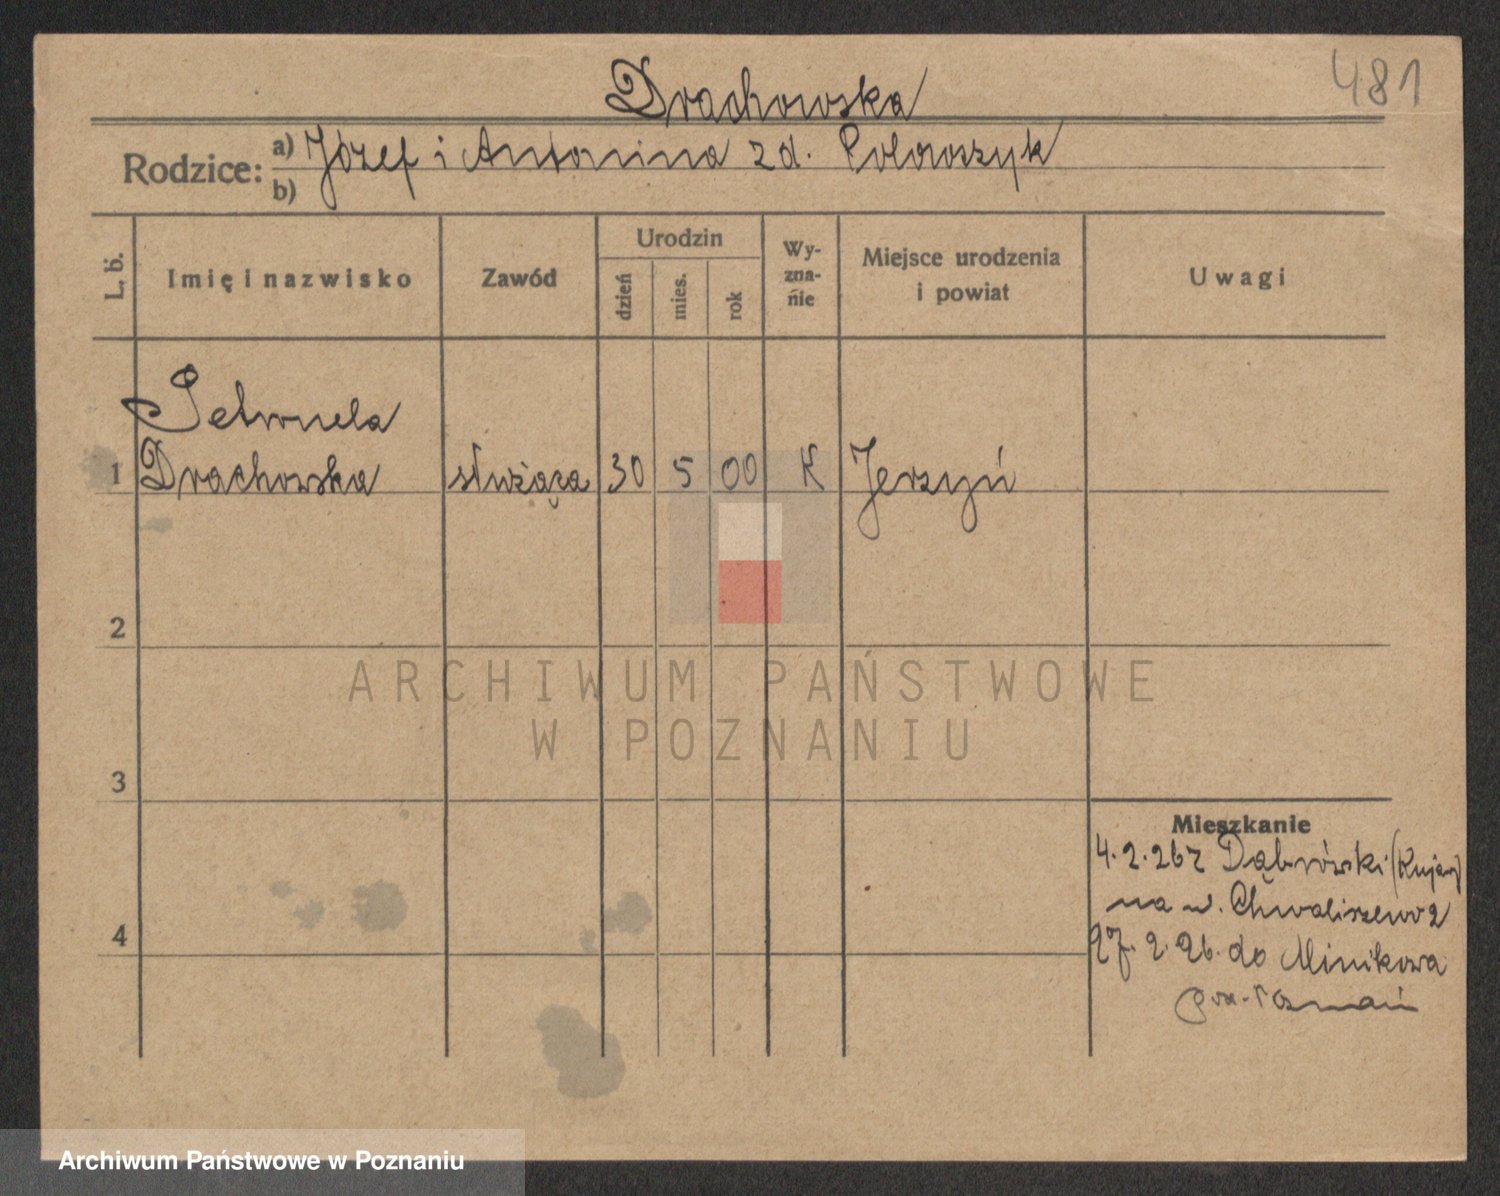 481
Drachowska
Rodzice: a) Józef i Antonina zd. Polowszyk
b)
L. b. Imię i nazwisko Zawód Urodzin dzień mies. rok Wy-zna-nie Miejsce urodzenia i powiat Uwagi
Petronela
1 Drachowska służąca 30 5 00 K Jerzyń
2
ARCHIWUM PAŃSTWOWE
W POZNANIU
3
Mieszkanie
4.2.26 z Dąbrówki (Kujaw)
na w. Chwaliszewo 2
4
27. 2. 26. do Minikowa
pow. Poznań
Archiwum Państwowe w Poznaniu